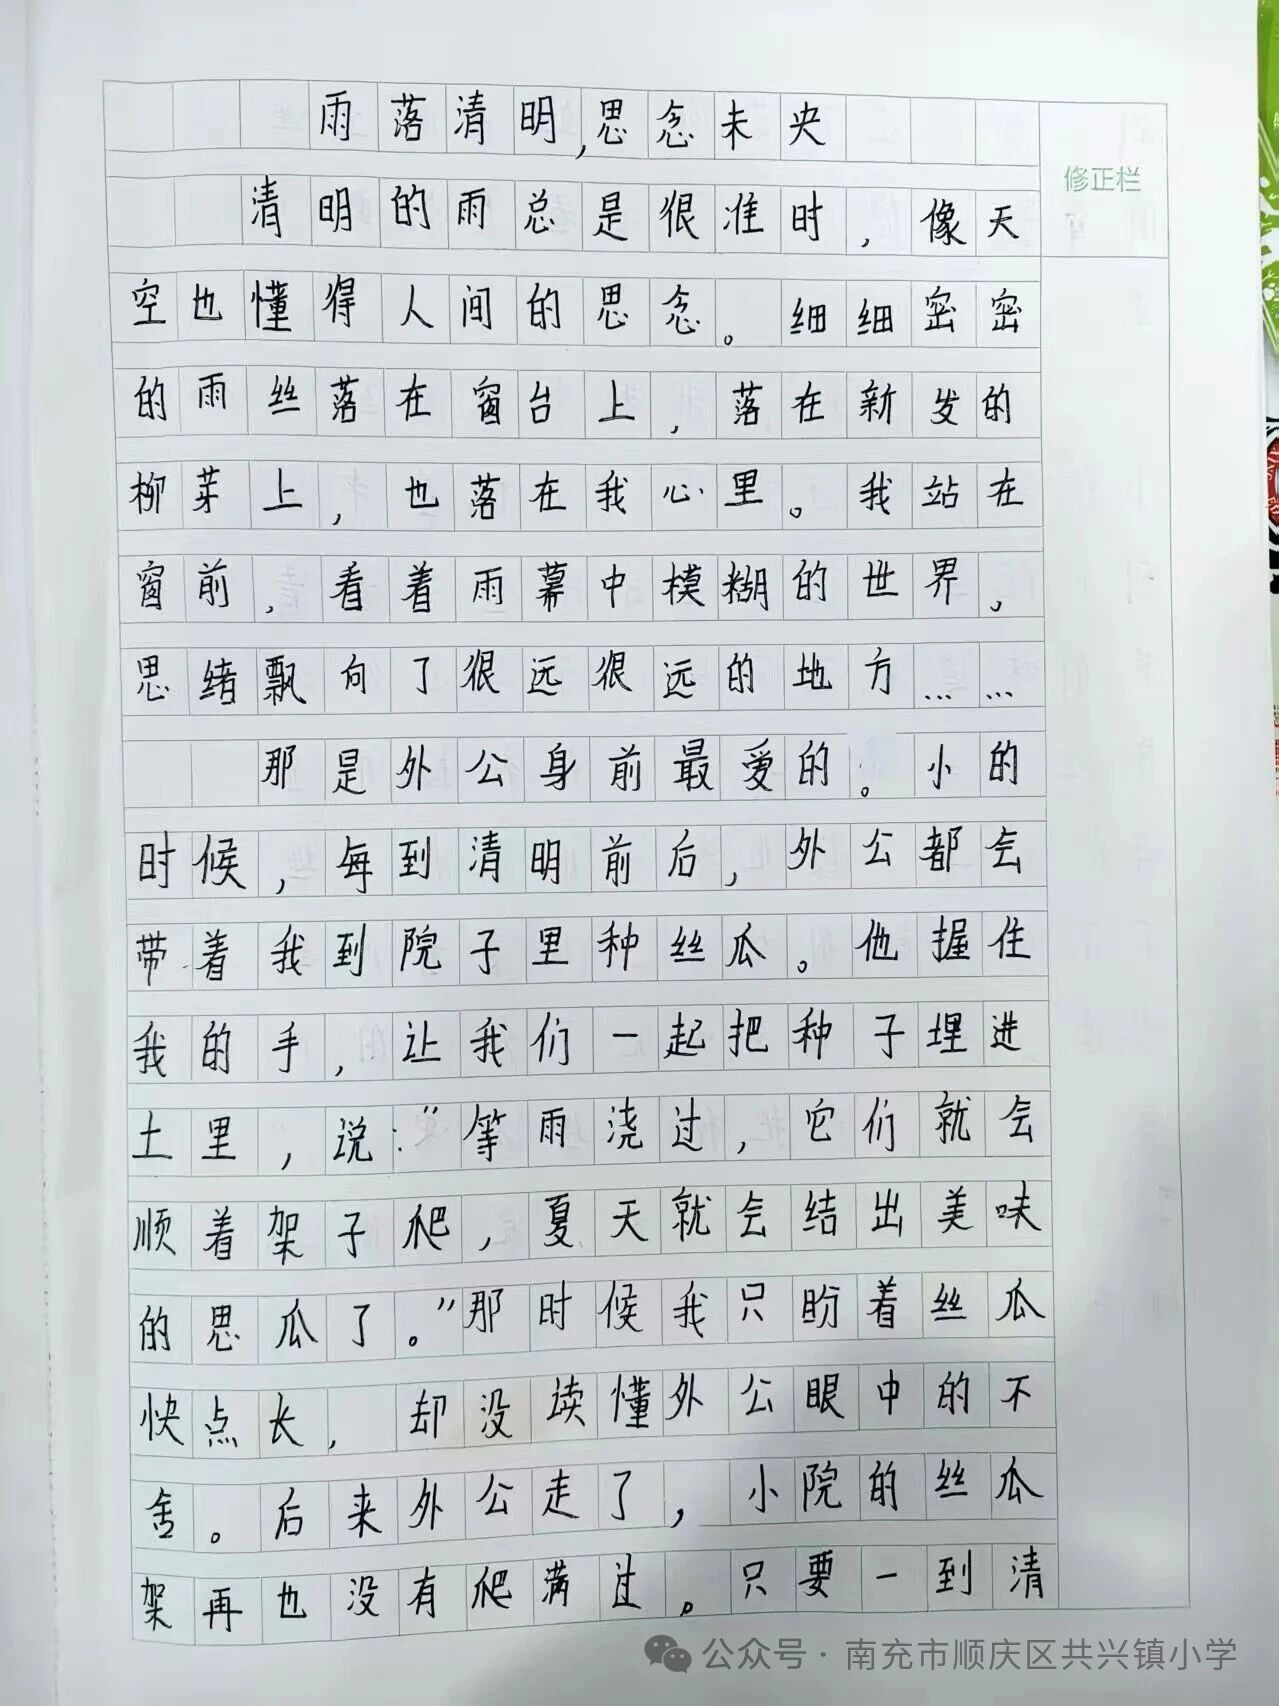 雨落清明,思念未央
修正栏
清明的雨总是很准时，像天
空也懂得人间的思念。细细密密
的雨丝落在窗台上，落在新发的
柳芽上，也落在我心里。我站在
窗前，看着雨幕中模糊的世界，
思绪飘向了很远很远的地方……
那是外公身前最爱的。小的
时候，每到清明前后，外公都会
带着我到院子里种丝瓜。他握住
我的手，让我们一起把种子埋进
土里，说："等雨浇过，它们就会
顺着架子爬，夏天就会结出美味
的思瓜了。"那时候我只盼着丝瓜
快点长，却没读懂外公眼中的不
舍。后来外公走了，小院的丝瓜
架再也没有爬满过。只要一到清
公众号·南充市顺庆区共兴镇小学